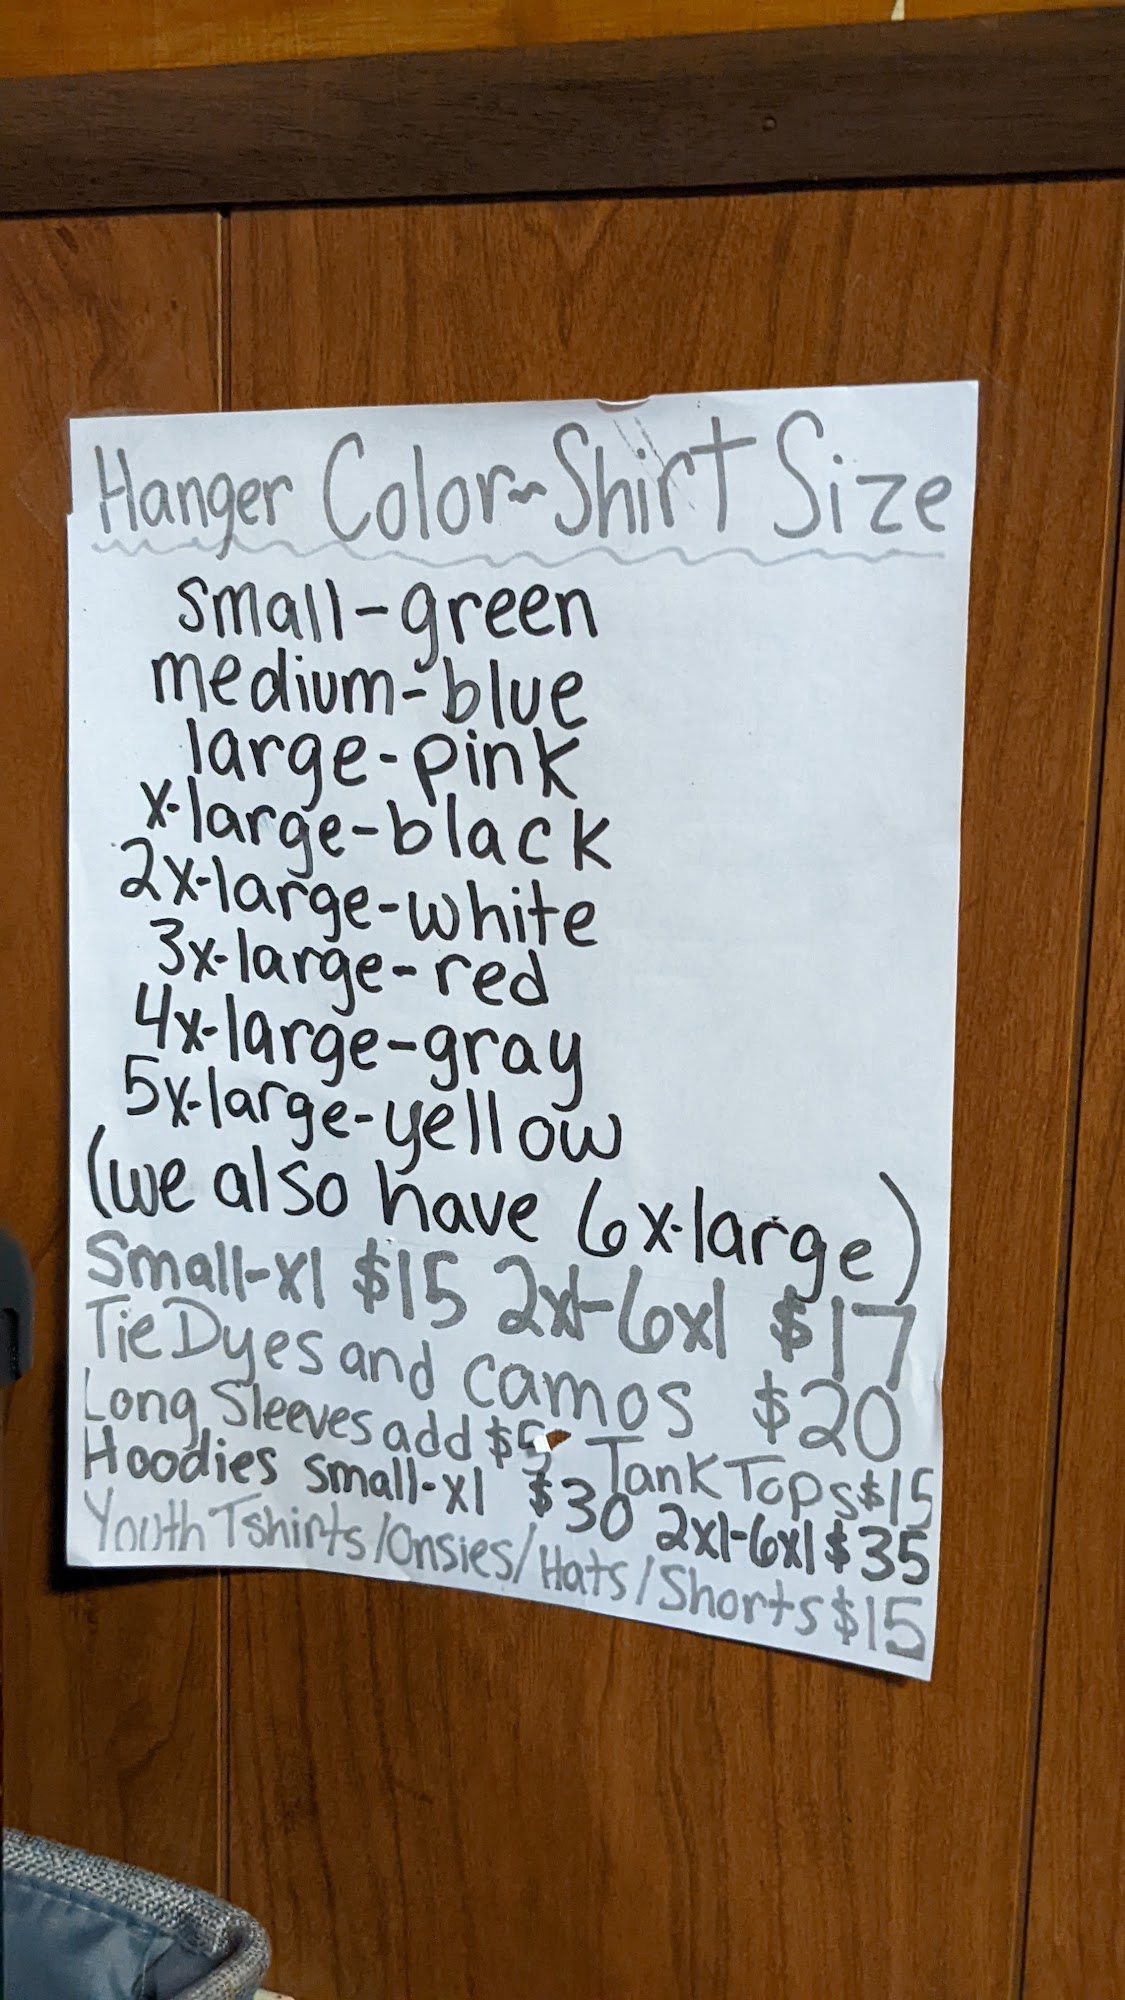 Hanger Color~Shirt Size
small-green
medium-blue
large-pink
x-large-black
2x-large-white
3x-large-red
4x-large-gray
5x-large-yellow
(we also have 6x-large)
Small-xl $15 2xl-6xl $17
Tie Dyes and camos $20
Long Sleeves add $5 Tank Tops $15
Hoodies small-xl $30 2xl-6xl $35
Youth Tshirts/Onsies/Hats/Shorts $15